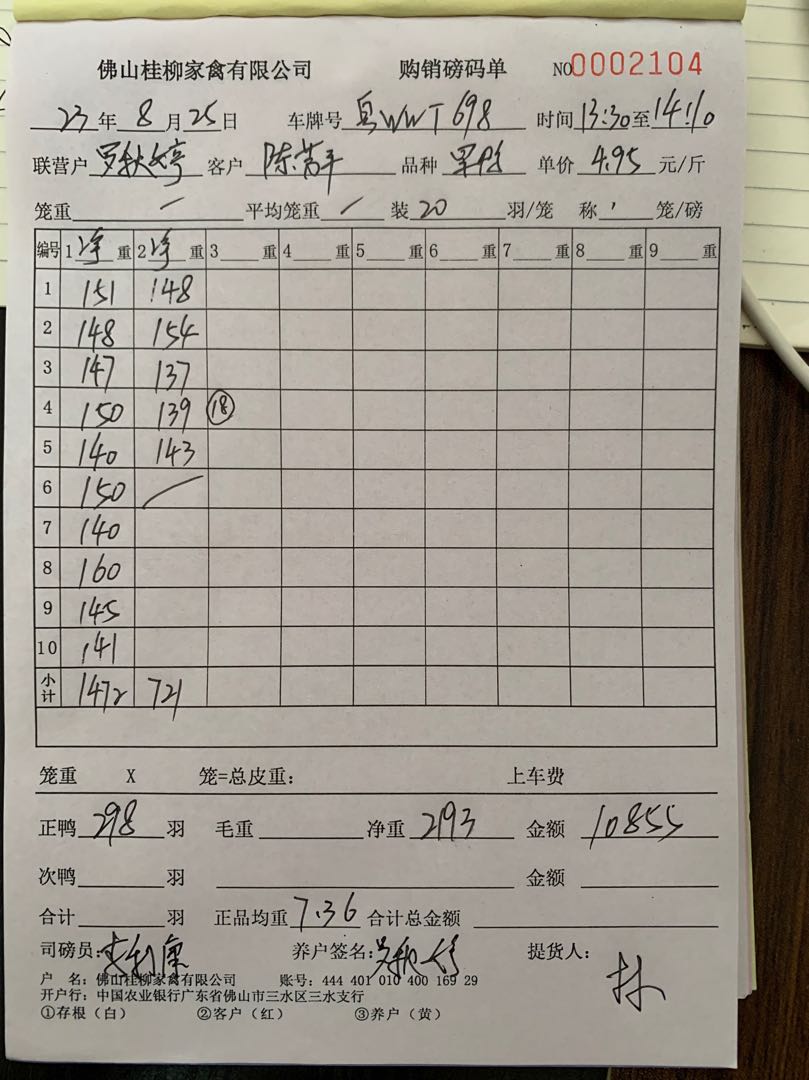 佛山桂柳家禽有限公司 购销磅码单 NO0002104
23年8月25日 车牌号 粤WWT698 时间13:30至14:10
联营户 罗秋婷 客户 陈 平 品种 单价4.95元/斤
笼重 / 平均笼重 / 装20羽/笼 称 ' 笼/磅
编号 1净重 2净重 3 重 4 重 5 重 6 重 7 重 8 重 9 重
1 151 148
2 148 154
3 147 137
4 150 139 ⑱
5 140 143
6 150 /
7 140
8 160
9 145
10 141
小计 1472 721
笼重 X 笼=总皮重： 上车费
正鸭298羽 毛重 净重2193 金额10855
次鸭 羽 金额
合计 羽 正品均重7.36 合计总金额
司磅员： 养户签名：罗秋婷 提货人： 林
户 名：佛山桂柳家禽有限公司 账号：444 401 010 400 169 29
开户行：中国农业银行广东省佛山市三水区三水支行
①存根（白） ②客户（红） ③养户（黄）